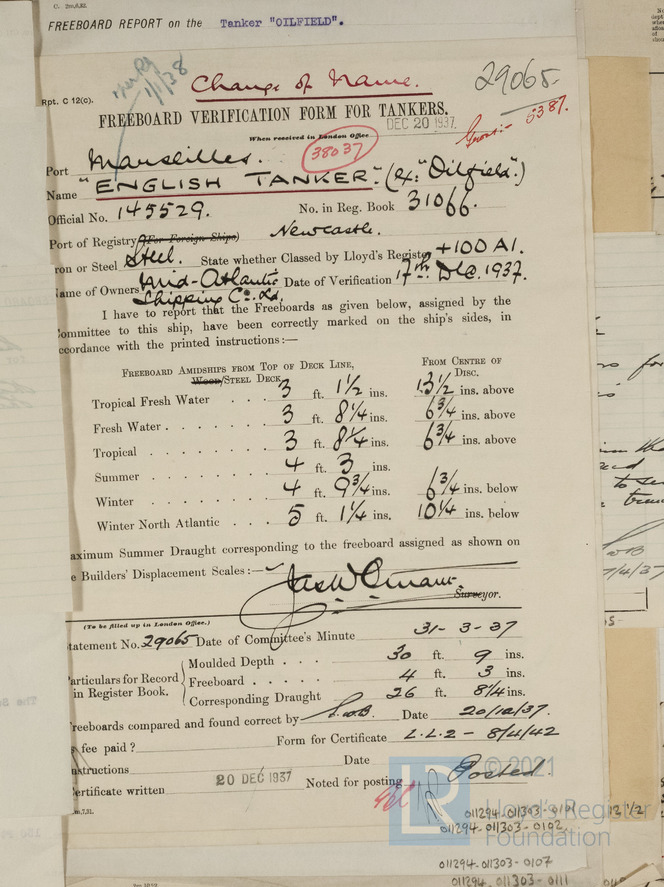 C. 2m,6,32.
FREEBOARD REPORT on the Tanker "OILFIELD".
1/1/38
Change of Name.
29065.
Rpt. C 12(c).
FREEBOARD VERIFICATION FORM FOR TANKERS.
When received in London Office
DEC 20 1937
5387.
38037
Port Marseilles.
Name "ENGLISH TANKER". (ex. "Oilfield".)
Official No. 145529. No. in Reg. Book 31066.
Port of Registry (For Foreign Ships) Newcastle.
ron or Steel Steel. State whether Classed by Lloyd's Register +100 A1.
ame of Owners Mid-Atlantic Shipping Co. Ld. Date of Verification 17th Dec. 1937.
I have to report that the Freeboards as given below, assigned by the
ommittee to this ship, have been correctly marked on the ship's sides, in
ccordance with the printed instructions:—
FREEBOARD AMIDSHIPS FROM TOP OF DECK LINE, FROM CENTRE OF
WOOD/STEEL DECK DISC.
Tropical Fresh Water . . . 3 ft. 1 1/2 ins. 13 1/2 ins. above
Fresh Water . . . . . . . 3 ft. 8 1/4 ins. 6 3/4 ins. above
Tropical . . . . . . . . 3 ft. 8 1/4 ins. 6 3/4 ins. above
Summer . . . . . . . . 4 ft. 3 ins.
Winter . . . . . . . . 4 ft. 9 3/4 ins. 6 3/4 ins. below
Winter North Atlantic . . . 5 ft. 1 1/4 ins. 10 1/4 ins. below
aximum Summer Draught corresponding to the freeboard assigned as shown on
e Builders' Displacement Scales:—
Surveyor.
(To be filled up in London Office.)
tatement No. 29065 Date of Committee's Minute 31-3-37
articulars for Record in Register Book.
Moulded Depth . . . 30 ft. 9 ins.
Freeboard . . . . . 4 ft. 3 ins.
Corresponding Draught 26 ft. 8 1/4 ins.
reeboards compared and found correct by Date 20/12/37.
s fee paid ? Form for Certificate L.L.2 - 8/4/42
nstructions Date
ertificate written 20 DEC 1937 Noted for posting Posted.
m,7,31.
© 2021
LR
Lloyd's Register
Foundation
011294-011303-0101
12 1/2
011294-011303-0102
011294-011303-0107
011294-011303-0111